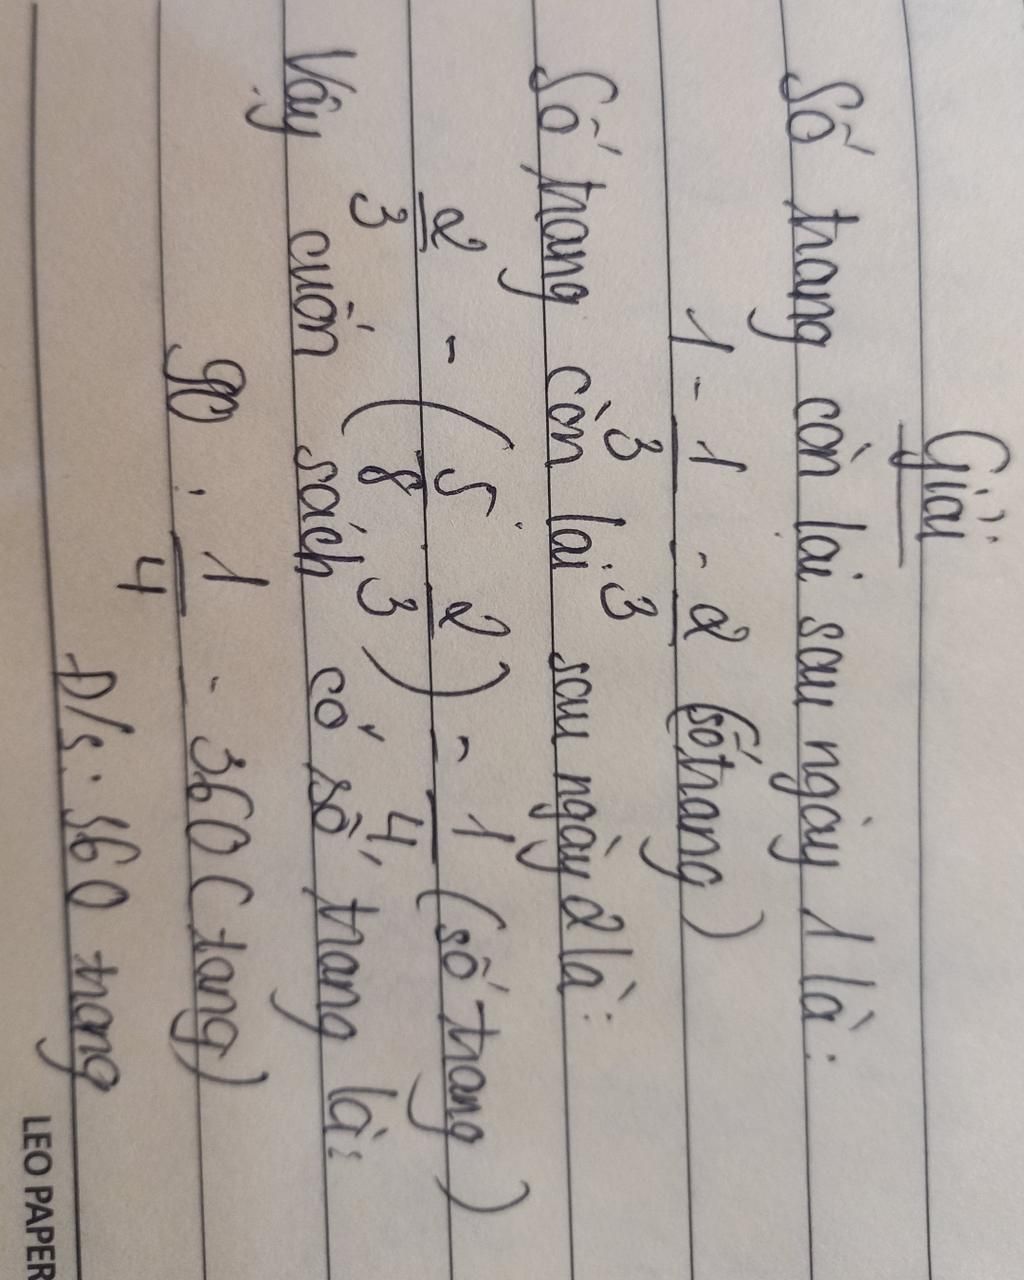 Giải
Số trang còn lại sau ngày 1 là:
1 - 1/3 - 2/3 (số trang)
Số trang còn lại sau ngày 2 là:
2/3 - (5/8 . 2/3) - 1/4 (số trang)
Vậy cuốn sách có số trang là:
90 : 1/4 - 360 (tang)
Đ/s: 360 trang
LEO PAPER